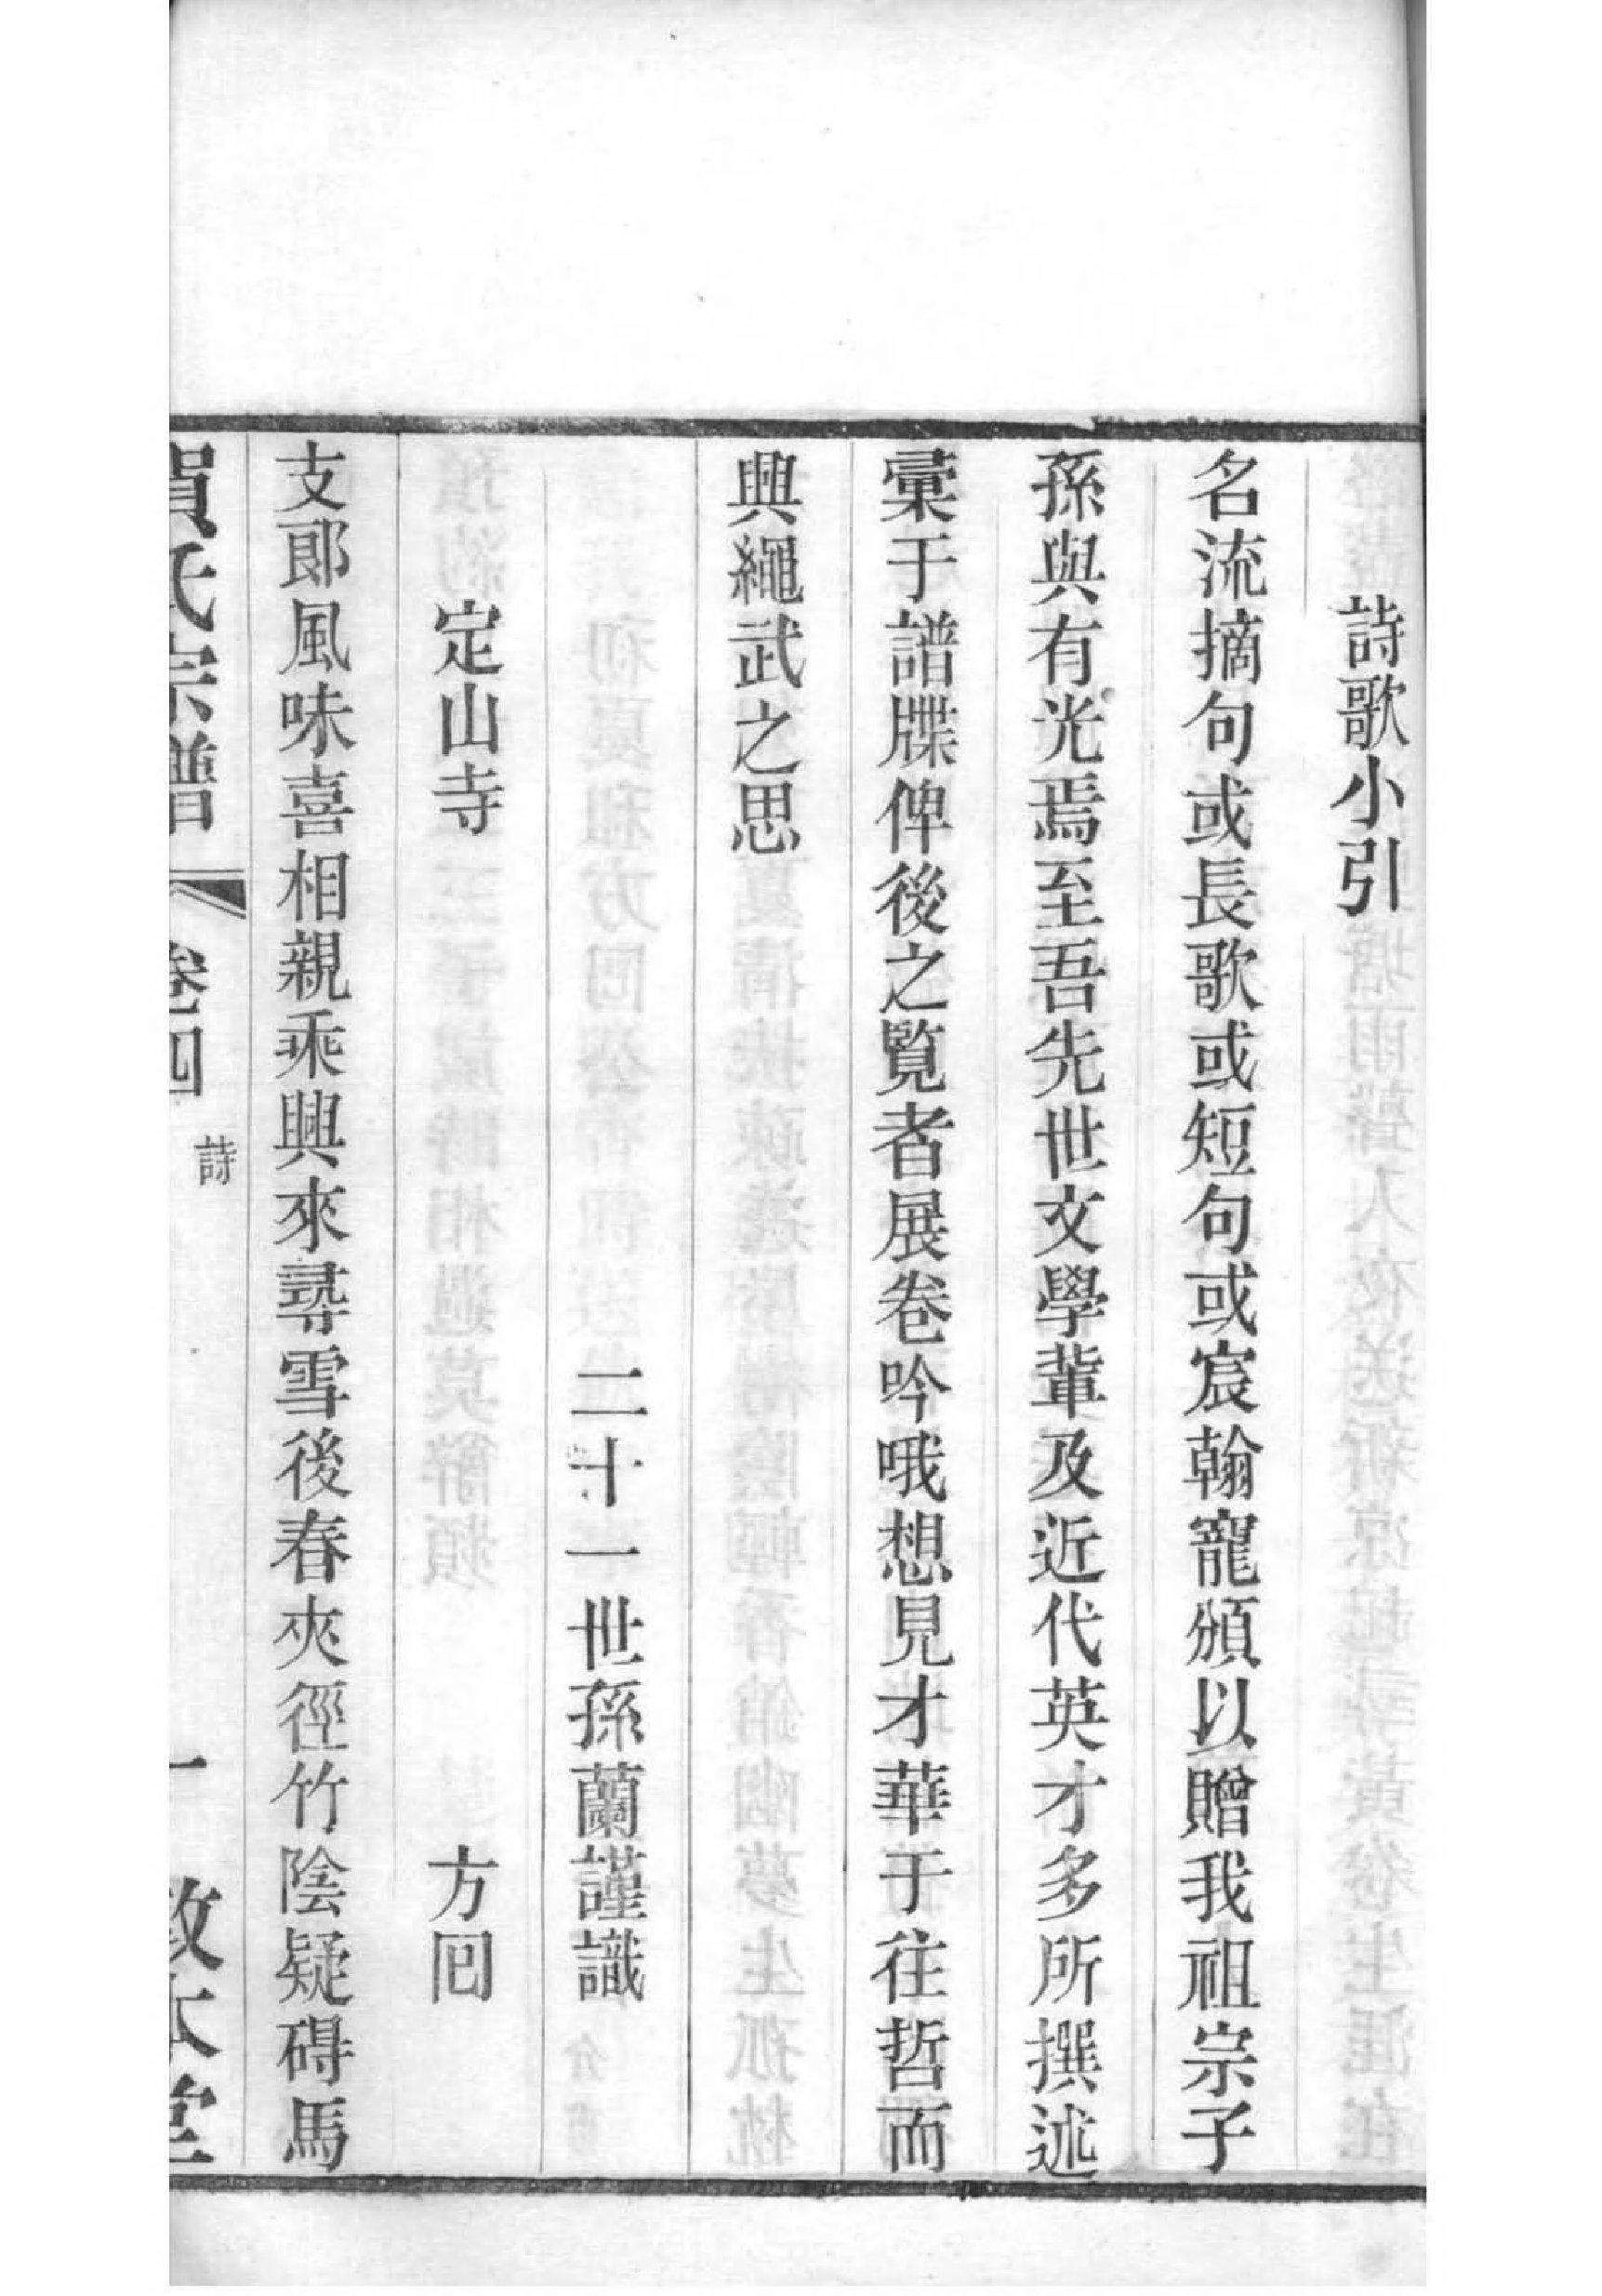 詩歌小引
名流摘句或長歌或短句或宸翰寵頒以贈我祖宗子
孫與有光焉至吾先世文學輩及近代英才多所撰述
彙于譜牒俾後之覧者展卷吟哦想見才華于往哲而
興繩武之思
二十一世孫蘭謹識
定山寺　方囘
支郎風味喜相親乘興來尋雪後春夾徑竹陰疑碍馬
賀氏宗譜　卷四　詩　一　敦本堂